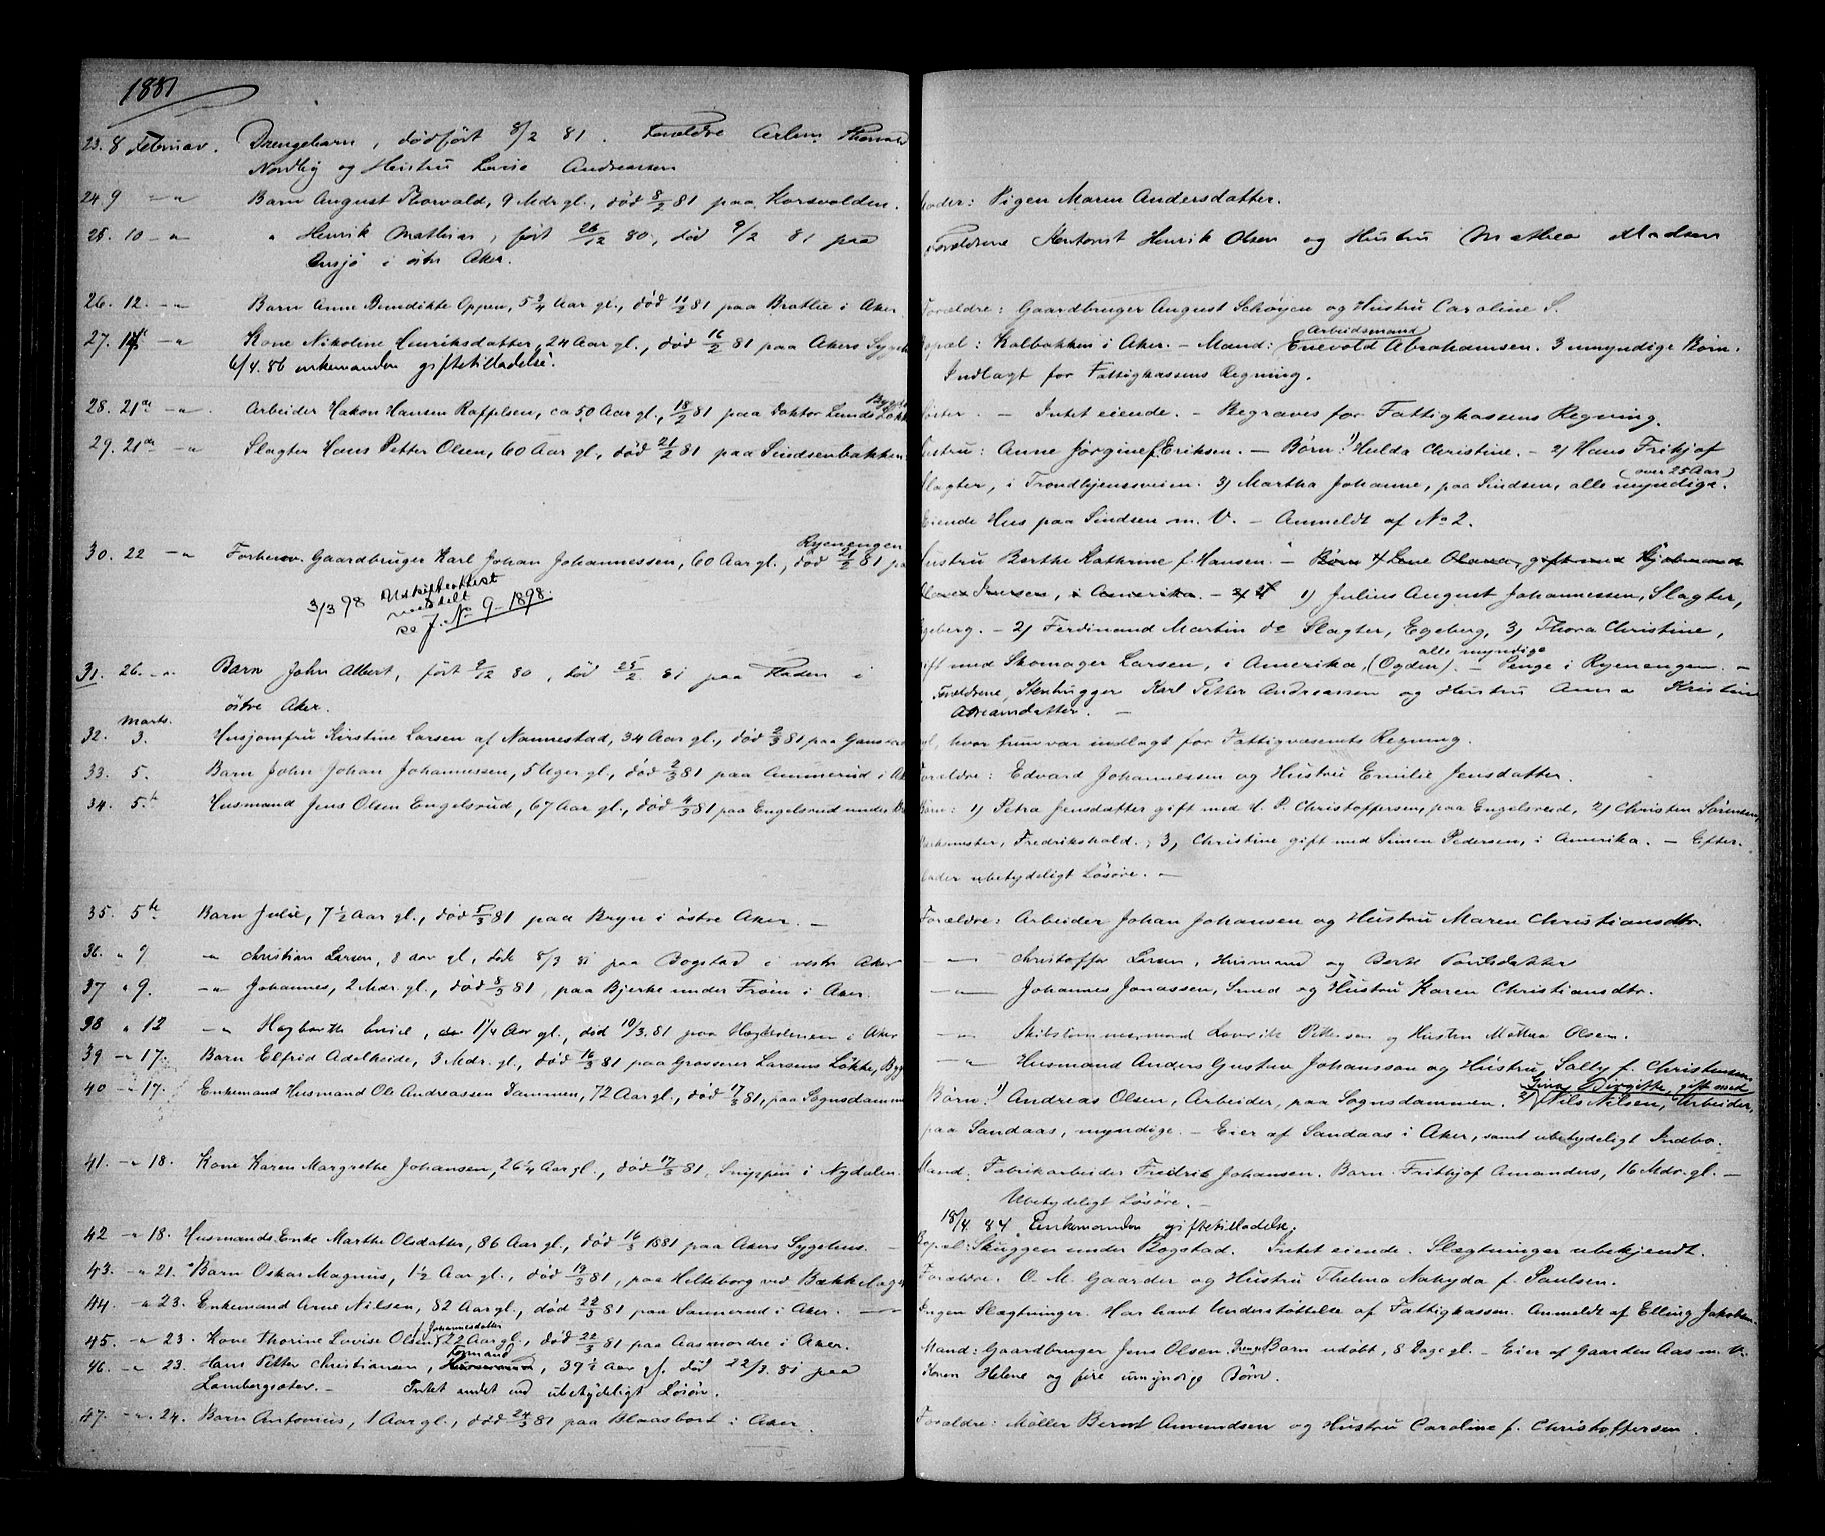 1881
23. 8 Februar. Drengebarn, dødfødt 8/2 81. Forældre Arbm. Thorvald
Nordby og Hustru Lovise Andreassen
24. 9 -"- Barn August Thorvald, 9 Mdr gl., død 8/2 81 paa Korsvolden. Moder: Pigen Maren Andersdatter.
25. 10 -"- " Henrik Mathias, født 26/12 80, død 9/2 81 paa Forældrene Kontorist Henrik Olsen og Hustru Mathea Madsen
i østr. Aker.
26. 12. -"- Barn Anne Bendikte Oppen, 5 3/4 Aar gl., død 11/2 81 paa Bratlie i Aker Forældre: Gaardbruger August Schøyen og Hustru Caroline S.
27. -"- Kone Nikoline Henriksdatter, 24 Aar gl., død 16/2 81 paa Akers Sygeh. Bopæl: Kalbakken i Aker. - Mand: Arbeidsmand Enevold Abrahamsen. 3 umyndige Børn.
6/4. 86 enkemanden giftetilladelse. Indlagt for Fattigkassens Regning.
28. 21de -"- Arbeider Hakon Hansen Raffelsen, ca 50 Aar gl., 18/2 81 paa Doktor Lunds Løkke - Intet eiende. - Begraves for Fattigkassens Regning.
29. 21de -"- Slagter Hans Petter Olsen, 60 Aar gl., død 21/2 81 paa Sindsenbakken Hustru: Anne Jørgine f. Eriksen. - Børn: 1) Hulda Christine. - 2) Hans Fritjof
Slagter, i Trondhjemsveien. 3) Martha Johanne, paa Sindsen, alle myndige. (over 25 Aar)
Eiende Hus paa Sindsen m. V. - Anmeldt af No 2.
30. 22 -"- Forhenv. Gaardbruger Karl Johan Johannessen, 60 Aar gl., død 21/2 81 paa Ryenengen Hustru Berthe Kathrine f. Hansen. - Børn 1) Lene Olava, gift med Kjøbmand
3/3 98 Udskiftattest meddelt se J. No 9 - 1898. Iversen, i Amerika. - 1) Julius August Johannessen, Slagter,
Egeberg. - 2) Ferdinand Martin do Slagter, Egeberg, 3) Thora Christine,
gift med Skomager Larsen, i Amerika, (Ogden). - alle myndige Penge i Ryenengen. -
31. 26. -"- Barn John Albert, født 9/12 80, død 25/2 81 paa Haden i Forældrene, Stenhugger Karl Petter Andreassen og Hustru Anna Kristine
østre Aker. Abramdatter. -
Marts.
32. 3. Husjomfru Kirstine Larsen af Nannestad, 34 Aar gl., død 2/3 81 paa Gaustad hvor hun var indlagt for Fattigvæsenets Regning.
33. 5. Barn John Johan Johannessen, 5 Uger gl., død 2/3 81 paa Ammerud i Aker Forældre: Edvard Johannessen og Hustru Emilie Jensdatter.
34. 5te Husmand Jens Olsen Engelsrud, 67 Aar gl., død 4/3 81 paa Engelsrud under Børn: 1) Petra Jensdatter gift med H. P. Christoffersen, paa Engelsrud, 2) Christen Sørensen,
Fredrikshald., 3) Christine gift med Simen Pedersen, i Amerika. - Efter-
lader ubetydeligt Løsøre. -
35. 5te Barn Julie, 7 1/2 Aar gl., død 5/3 81 paa Bryn i østre Aker. - Forældre: Arbeider Johan Johansen og Hustru Maren Christiansdtr.
36. " 9 -"- Christian Larsen, 8 aar gl, død 8/3 81 paa Bogstad i vestr Aker -"- Christoffer Larsen, Husmand og Berte Poulsdatter
37 " 9. -"- Johannes, 2 Mdr. gl., død 8/3 81, paa Bjerke under Frøen i Aker. -"- Johannes Jonassen, Smed og Hustru Karen Christiansdtr.
38 " 12 -"- Hagbarth Emil, 1 1/4 Aar gl., død 10/3. 81 paa i Aker -"- Skibstømmermand Lauritz Pettersen og Hustru Mathea Olsen.
39 -"- 17. Barn Elfrid Adelheide, 3 Mdr. gl., død 16/3 81 paa Grosserer Larsens Løkke, Byg -"- Husmand Anders Gustav Johansson og Hustru Sally f. Christensen
40 -"- 17. Enkemand Husmand Ole Andreassen Dammen, 72 Aar gl., død 17/3 81, paa Sognsdammen Børn: 1) Andreas Olsen, Arbeider, paa Sognsdammen. 2) Gina Birgitte, gift med Nils Nilsen, Arbeider,
paa Sandaas, myndige. - Eier af Sandaas i Aker, samt ubetydeligt Indbo.
41. -"- 18. Kone Karen Margrethe Johansen, 26 1/4 Aar gl., død 17/3 81, Snippen i Nydalen. Mand: Fabrikarbeider Fredrik Johansen. Barn: Frithjof Amandus, 16 Mdr. gl. -
Ubetydeligt Løsøre. -
18/4. 84. Enkemanden giftetilladelse.
42 -"- 18. Husmands Enke Marthe Olsdatter, 86 Aar gl., død 16/3 1881 paa Akers Sygehus. - Bopæl: Skuggen under Bogstad. Intet eiende. Slægtninger ubekjendt.
43. -"- 21. Barn Oskar Magnus, 1 1/2 Aar gl., død 19/3 81, paa Hilleborg ved Bækkelaget Forældre: O. M. Gaarder og Hustru Thelma Nakyda f. Paulsen.
44. -"- 23. Enkemand Arne Nilsen, 82 Aar gl., død 22/3 81 paa Sannerud i Aker. - Ingen Slægtninger. Har havt Understøttelse af Fattigkassen. Anmeldt af Elling Jakobsen.
45. -"- 23. Kone Thorine Lovise Olsen f. Johannesdatter, 22 Aar gl., død 22/3 81 paa Aas nordre i Aker. Mand: Gaardbruger Jens Olsen. Drenge Barn udøbt, 8 Dage gl. - Eier af Gaarden Aas m. V.
46. -"- 23. Hans Petter Christiansen, Formand, 39 1/2 Aar gl. død 22/3. 81 paa Konen Helene og fire umyndige Børn.
Lambergseter. - Intet andet end ubetydeligt Løsøre.
47. -"- 24. Barn Antonius, 1 Aar gl., død 24/3 81 paa Blaasbort i Aker Forældre: Møller Bernt Amundsen og Hustru Caroline f. Christoffersen.